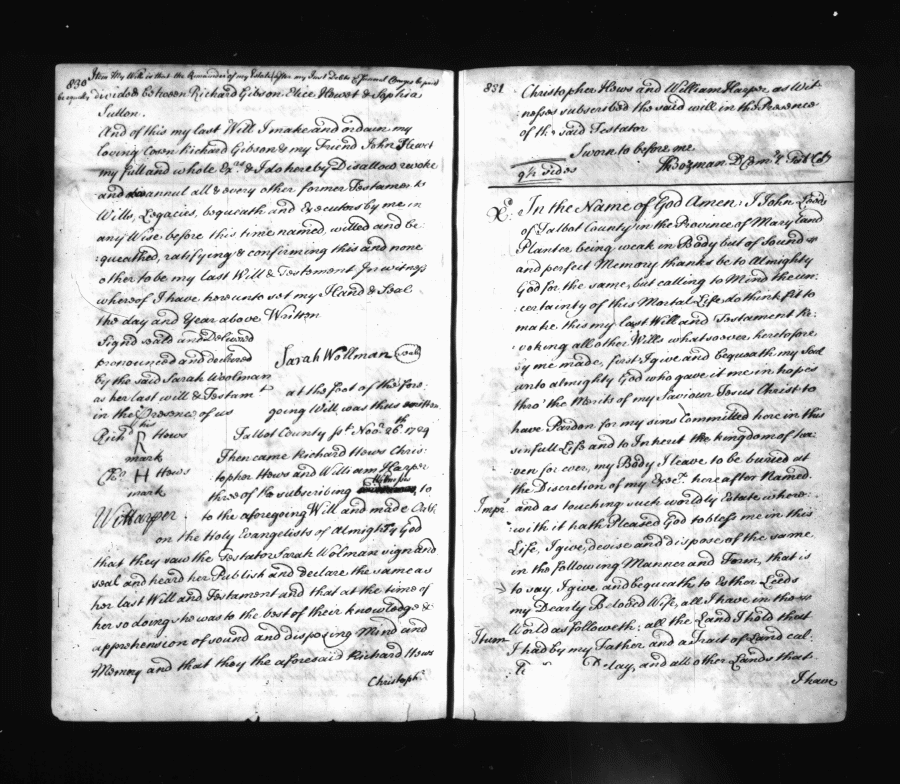 830
Item My Will is that the Remainder of my Estate (after my Just Debts & funeral Charges be paid
be equally divided between Richard Gibson, Elice Hewet & Sophia
Sutton.
And of this my last Will I make and ordain my
loving Cosen Richard Gibson & my Friend John Hewet
my full and whole Exrs. & I do hereby Disallow revoke
and annul all & every other former Testamts. &
Wills, Legacies, bequeath and Executors by me in
any Wise before this time named, willed and be-
queathed, ratifying & confirming this and none
other to be my last Will & Testament. In witness
whereof I have hereunto set my Hand & Seal
the day and Year above Written
Signd seald and Deliverd
pronounced and declared
by the said Sarah Woolman
as her last will & Testamt
in the Presence of us
Sarah Wollman (seal)
his
Richd R Hows
mark
Chr. H Hows
mark
Wi Harper
at the foot of the fore
going Will was thus
Talbot County sst. Novr. 26th 1729
Then came Richard Hows Chris-
topher Hows and William Harper
three of the subscribing Witnesses to
to the aforegoing Will and made Oath
on the Holy Evangelists of Almighty God
that they saw the Testator Sarah Wolman sign and
seal and heard her Publish and declare the same as
her last Will and Testament and that at the time of
her so doing she was to the best of their knowledge &
apprehension of sound and disposing Mind and
Memory and that they the aforesaid Richard Hows
Christophr
831
Christopher Hows and William Harper as Wit-
nesses subscribed the said will in the Presence
of the said Testator
Sworn to before me
Bozman D Comry Talbt Coty
9½ sides
In the Name of God Amen, I John Leeds
of Talbot County in the Province of Maryland
Planter being weak in Body but of Sound
and perfect Memory thanks be to Almighty
God for the same, but calling to Mind the un-
certainty of this Mortal Life do think fit to
make this my last Will and Testament Re-
voking all other Wills whatsoever heretofore
by me made, first I give and bequeath my Soul
unto almighty God who gave it me in hopes
thro' the Merits of my Saviour Jesus Christ to
have Pardon for my sins Committed here in this
sinfull Life and to Inherit the kingdom of hea-
ven for ever, my Body I leave to be buried at
the Discretion of my Exec. hereafter Named.
Impr. and as touching such worldly Estate where-
with it hath Pleased God to bless me in this
Life, I give, devise and dispose of the same
in the following Manner and Form, that is
to say, I give and bequeath to Esther Leeds
my Dearly Beloved Wife, all I have in the
World as followeth: all the Land I hold that
Item I had by my Father and a Tract of Land cal-
Delay, and all other Lands that
I have